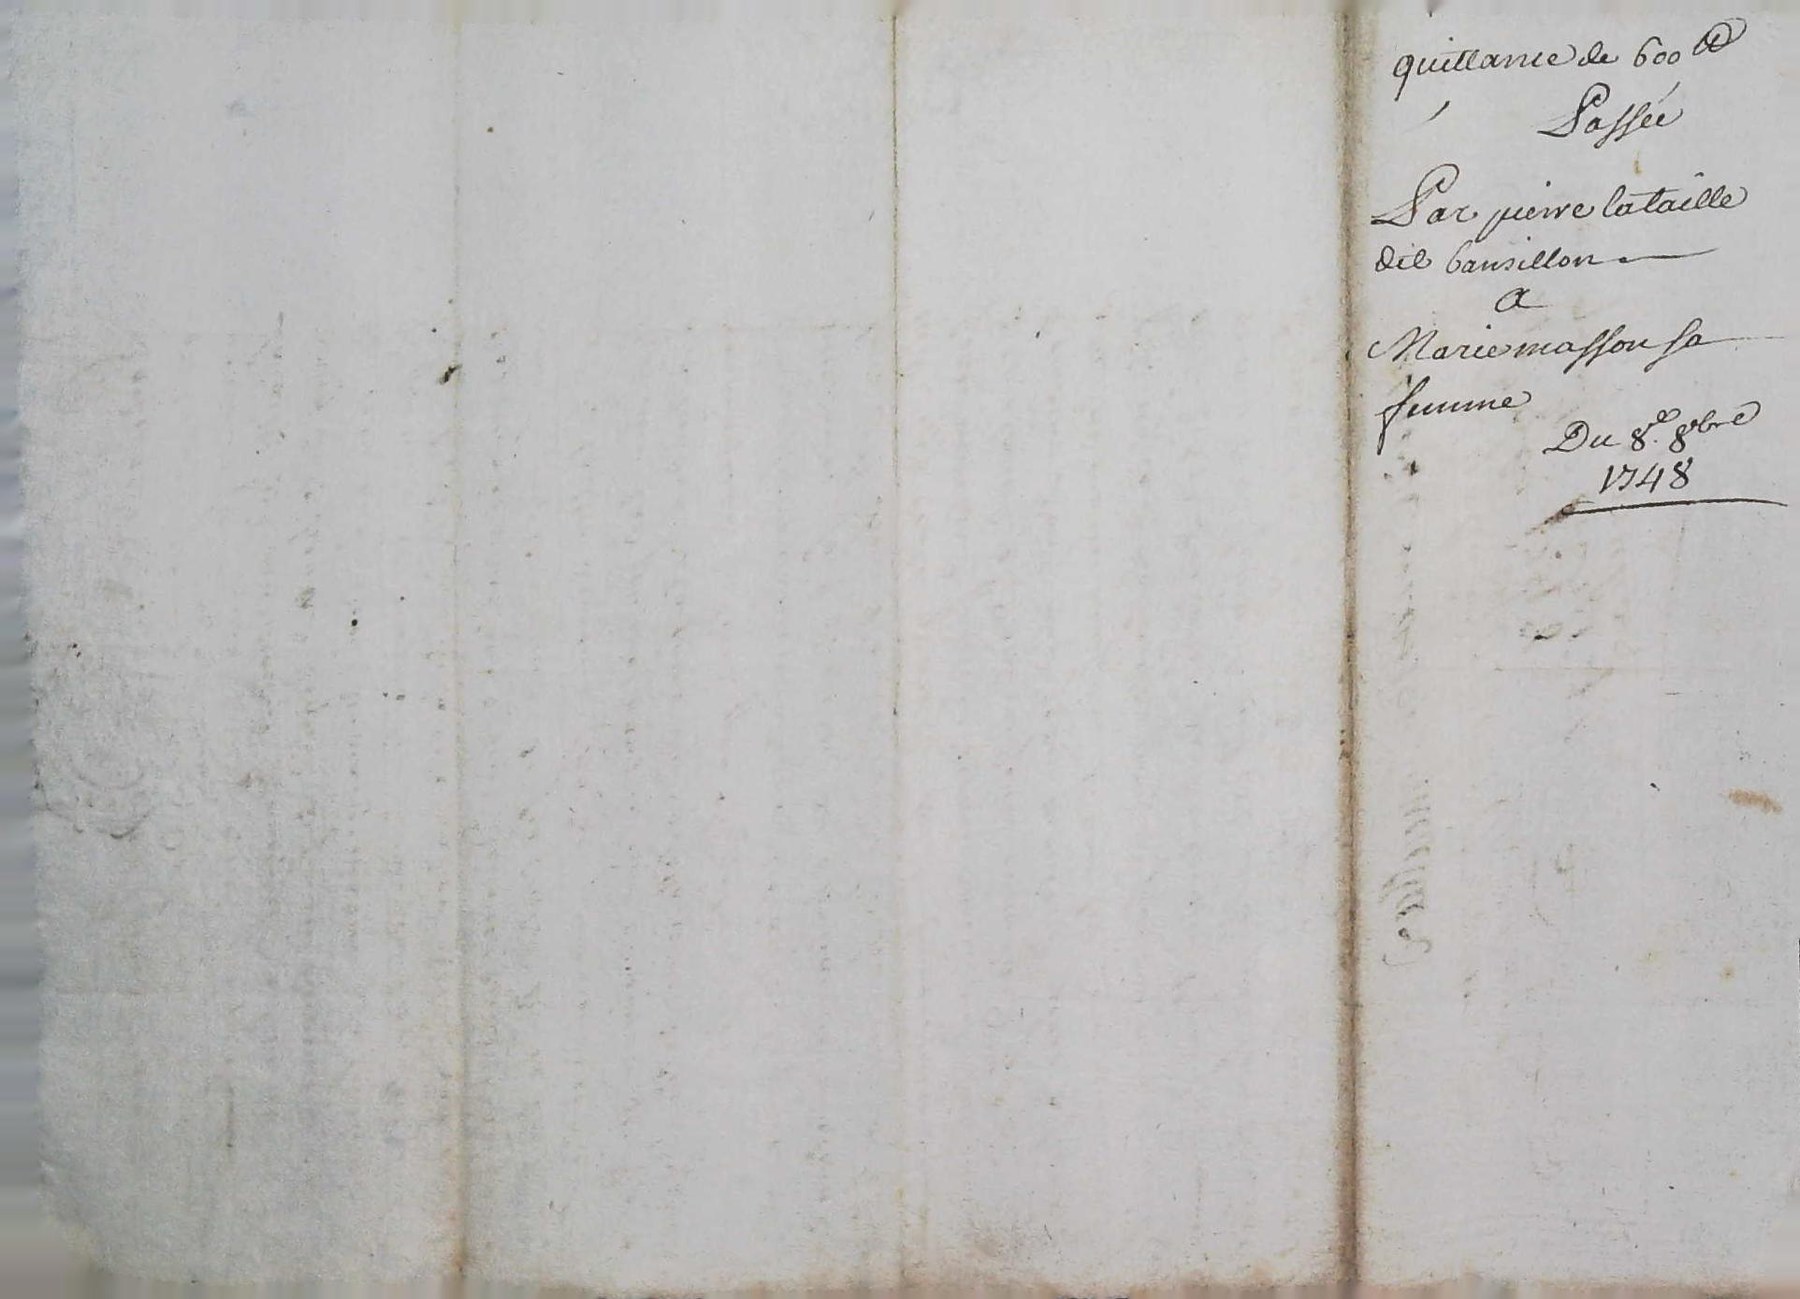 quittance de 600 ₶
Passée
Par pierre lataille
dit bansillon
a
Marie masson sa
femme
Du 8e. 8bre
1748